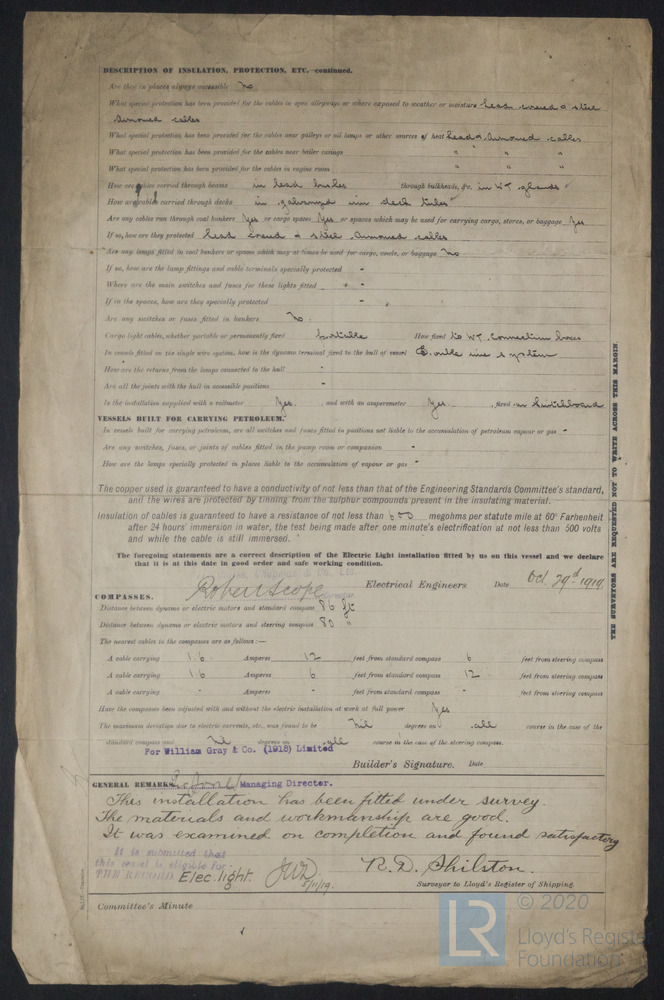 DESCRIPTION OF INSULATION, PROTECTION, ETC.—continued.
Are they in places always accessible No
What special protection has been provided for the cables in open alleyways or where exposed to weather or moisture Lead covered & steel
Armoured cables
What special protection has been provided for the cables near galleys or oil lamps or other sources of heat Lead & Armoured cables
What special protection has been provided for the cables near boiler casings " " "
What special protection has been provided for the cables in engine room " " "
How are cables carried through beams in lead bushes through bulkheads, &c. in W.T. glands
How are cables carried through decks in galvanized iron deck tubes
Are any cables run through coal bunkers Yes or cargo spaces Yes or spaces which may be used for carrying cargo, stores, or baggage Yes
If so, how are they protected Lead covered & steel Armoured cables
Are any lamps fitted in coal bunkers or spaces which may at times be used for cargo, coals, or baggage No
If so, how are the lamp fittings and cable terminals specially protected -
Where are the main switches and fuses for these lights fitted -
If in the spaces, how are they specially protected -
Are any switches or fuses fitted in bunkers No.
Cargo light cables, whether portable or permanently fixed portable How fixed to W.T. Connection boxes
In vessels fitted on the single wire system, how is the dynamo terminal fixed to the hull of vessel Double wire system
How are the returns from the lamps connected to the hull -
Are all the joints with the hull in accessible positions -
Is the installation supplied with a voltmeter Yes. and with an amperemeter Yes , fixed on Switchboard
VESSELS BUILT FOR CARRYING PETROLEUM.
In vessels built for carrying petroleum, are all switches and fuses fitted in positions not liable to the accumulation of petroleum vapour or gas -
Are any switches, fuses, or joints of cables fitted in the pump room or companion -
How are the lamps specially protected in places liable to the accumulation of vapour or gas -
The copper used is guaranteed to have a conductivity of not less than that of the Engineering Standards Committee's standard,
and the wires are protected by tinning from the sulphur compounds present in the insulating material.
Insulation of cables is guaranteed to have a resistance of not less than 600 megohms per statute mile at 60° Farhenheit
after 24 hours' immersion in water, the test being made after one minute's electrification at not less than 500 volts
and while the cable is still immersed.
The foregoing statements are a correct description of the Electric Light installation fitted by us on this vessel and we declare
that it is at this date in good order and safe working condition.
Robert Scope Electrical Engineers Date Oct 29th 1919
COMPASSES.
Distance between dynamo or electric motors and standard compass 86 ft
Distance between dynamo or electric motors and steering compass 80 "
The nearest cables to the compasses are as follows:—
A cable carrying 1.6 Amperes 12 feet from standard compass 6 feet from steering compass
A cable carrying 1.6 Amperes 6 feet from standard compass 12 feet from steering compass
A cable carrying - Amperes - feet from standard compass - feet from steering compass
Have the compasses been adjusted with and without the electric installation at work at full power Yes
The maximum deviation due to electric currents, etc., was found to be Nil degrees on all course in the case of the
standard compass and Nil degrees on all course in the case of the steering compass.
For William Gray & Co. (1918) Limited
Builder's Signature. Date
Managing Director.
GENERAL REMARKS.
This installation has been fitted under survey.
The materials and workmanship are good.
It was examined on completion and found satisfactory
It is submitted that
this vessel is eligible for
THE RECORD Elec. light. JWD 5/11/19.
R. D. Shilston.
Surveyor to Lloyd's Register of Shipping.
Committee's Minute
THE SURVEYORS ARE REQUESTED NOT TO WRITE ACROSS THIS MARGIN
© 2020
LR
Lloyd's Register
Foundation